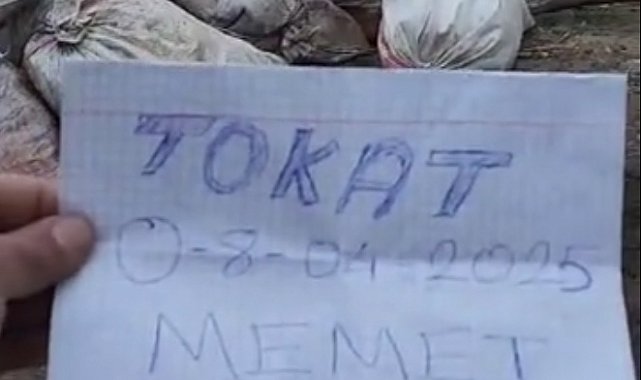 TOKAT
0-8-04-2025
MEMET